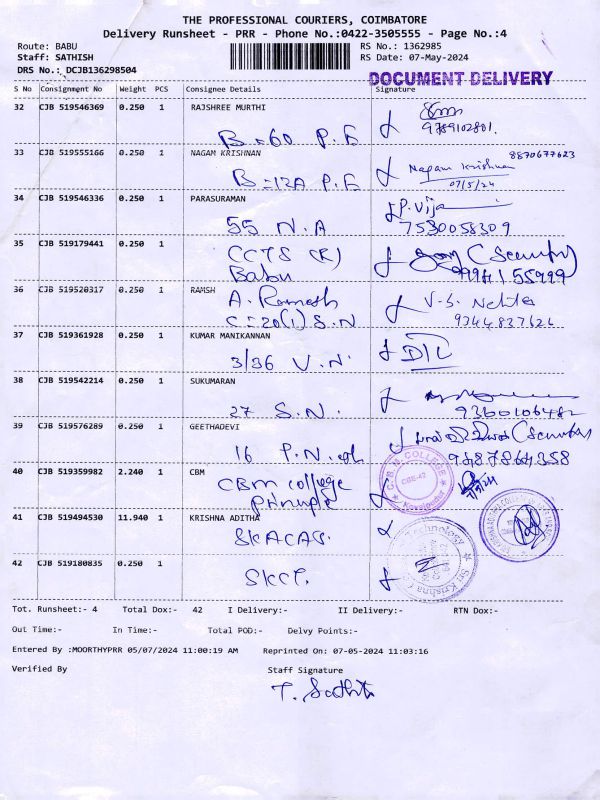 THE PROFESSIONAL COURIERS, COIMBATORE
Delivery Runsheet - PRR - Phone No.:0422-3505555 - Page No.:4
Route: BABU
RS No.: 1362985
Staff: SATHISH
RS Date: 07-May-2024
DRS No.: DCJB136298504
DOCUMENT DELIVERY
S No Consignment No Weight PCS Consignee Details Signature
32 CJB 519546369 0.250 1 RAJSHREE MURTHI
9789102801.
B=60 P.E
33 CJB 519555166 0.250 1 NAGAM KRISHNAN
8870677623
Nagam Krishnan
B=12A P.E
07/5/24
34 CJB 519546336 0.250 1 PARASURAMAN
P.Vija
55 N.A
7530058309
35 CJB 519179441 0.250 1
CCTS (R)
Babu
9994155999
36 CJB 519520317 0.250 1 RAMSH
A. Ramesh
C=20(1) S.N
9344837626
37 CJB 519361928 0.250 1 KUMAR MANIKANNAN
3/36 V.N
38 CJB 519542214 0.250 1 SUKUMARAN
27 S.N.
9360106482
39 CJB 519576289 0.250 1 GEETHADEVI
16 P.N.
9487864358
40 CJB 519359982 2.240 1 CBM
CBM college
principle
C.B.M. COLLEGE
CBE-42
Kovaipudur
41 CJB 519494530 11.940 1 KRISHNA ADITHA
SKACAS.
42 CJB 519180835 0.250 1
SKCT.
Tot. Runsheet:- 4 Total Dox:- 42 I Delivery:- II Delivery:- RTN Dox:-
Out Time:- In Time:- Total POD:- Delvy Points:-
Entered By :MOORTHYPRR 05/07/2024 11:00:19 AM Reprinted On: 07-05-2024 11:03:16
Verified By Staff Signature
T. Sathish